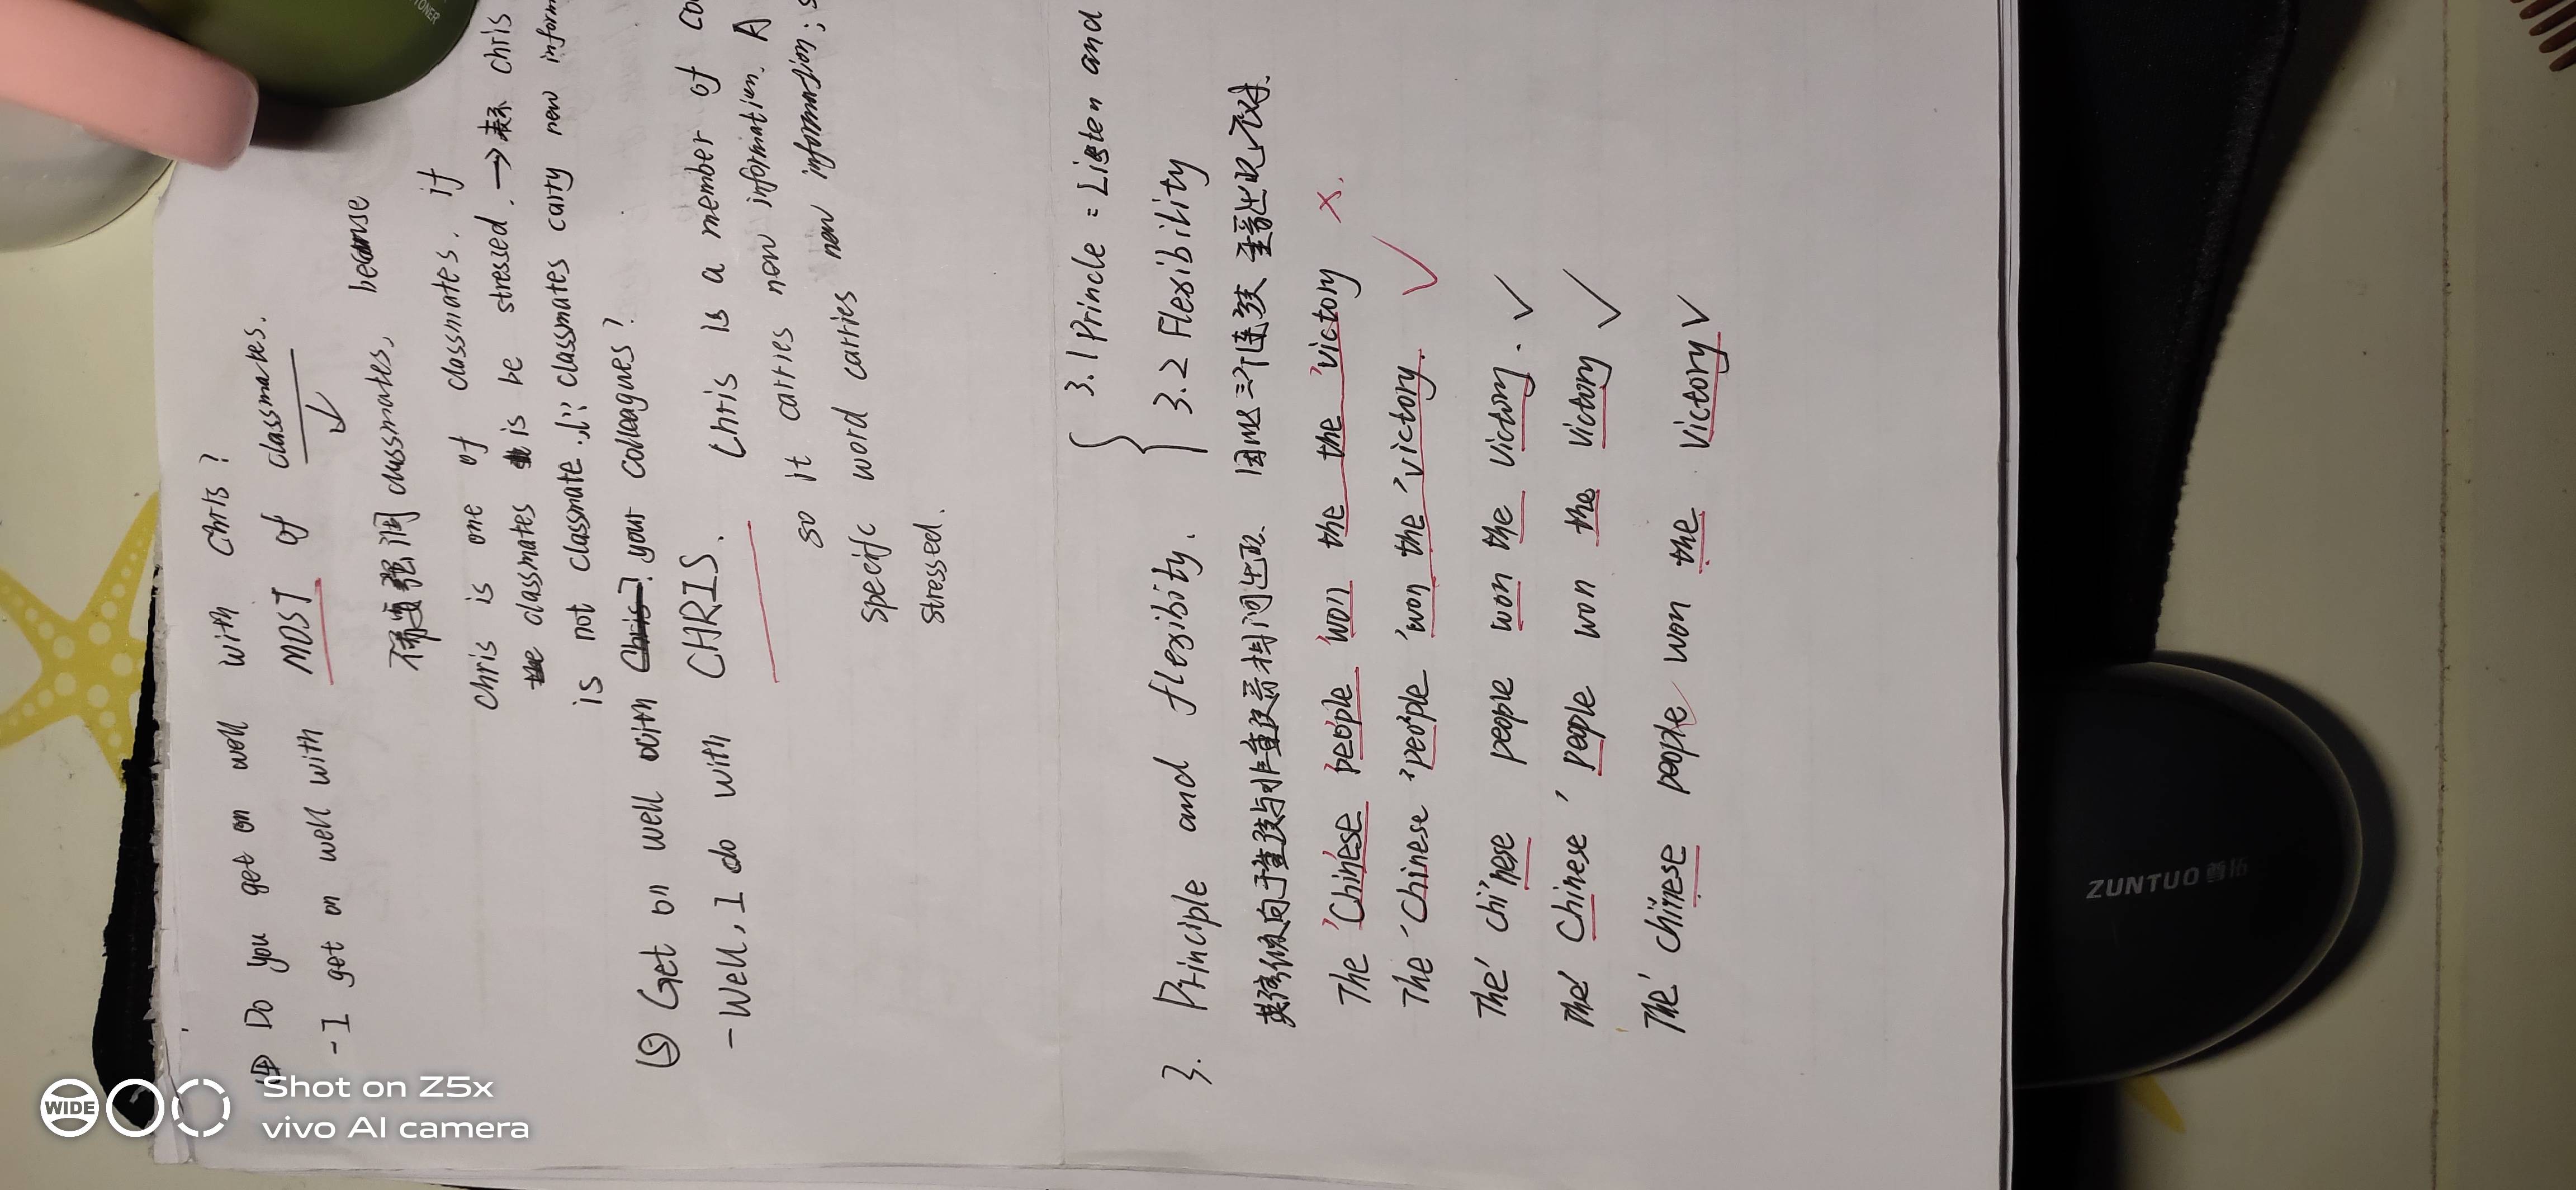 ④ Do you get on well with Chris?
- I get on well with MOST of classmates.
不需要强调 classmates, because
Chris is one of classmates. if
classmates is be stressed. → 表示 Chris
is not classmate. classmates carry new inform
⑤ Get on well with your colleagues?
- Well, I do with CHRIS. Chris is a member of co
so it carries new information. A
specific word carries new information; s
stressed.
3. Principle and flexibity. { 3.1 Princle = Listen and
3.2 Flexibility
英语倾向于重读与非重读音相间出现. 因此三个连续重音出现不对.
The 'Chinese 'people 'won the the 'victory ×.
The 'Chinese 'people 'won the 'victory. ✓
The' chi'nese people won the victory. ✓
The' Chinese 'people won the victory ✓
The' chinese people won the victory ✓
TONER
ZUNTUO 尊拓
WIDE
Shot on Z5x
vivo AI camera